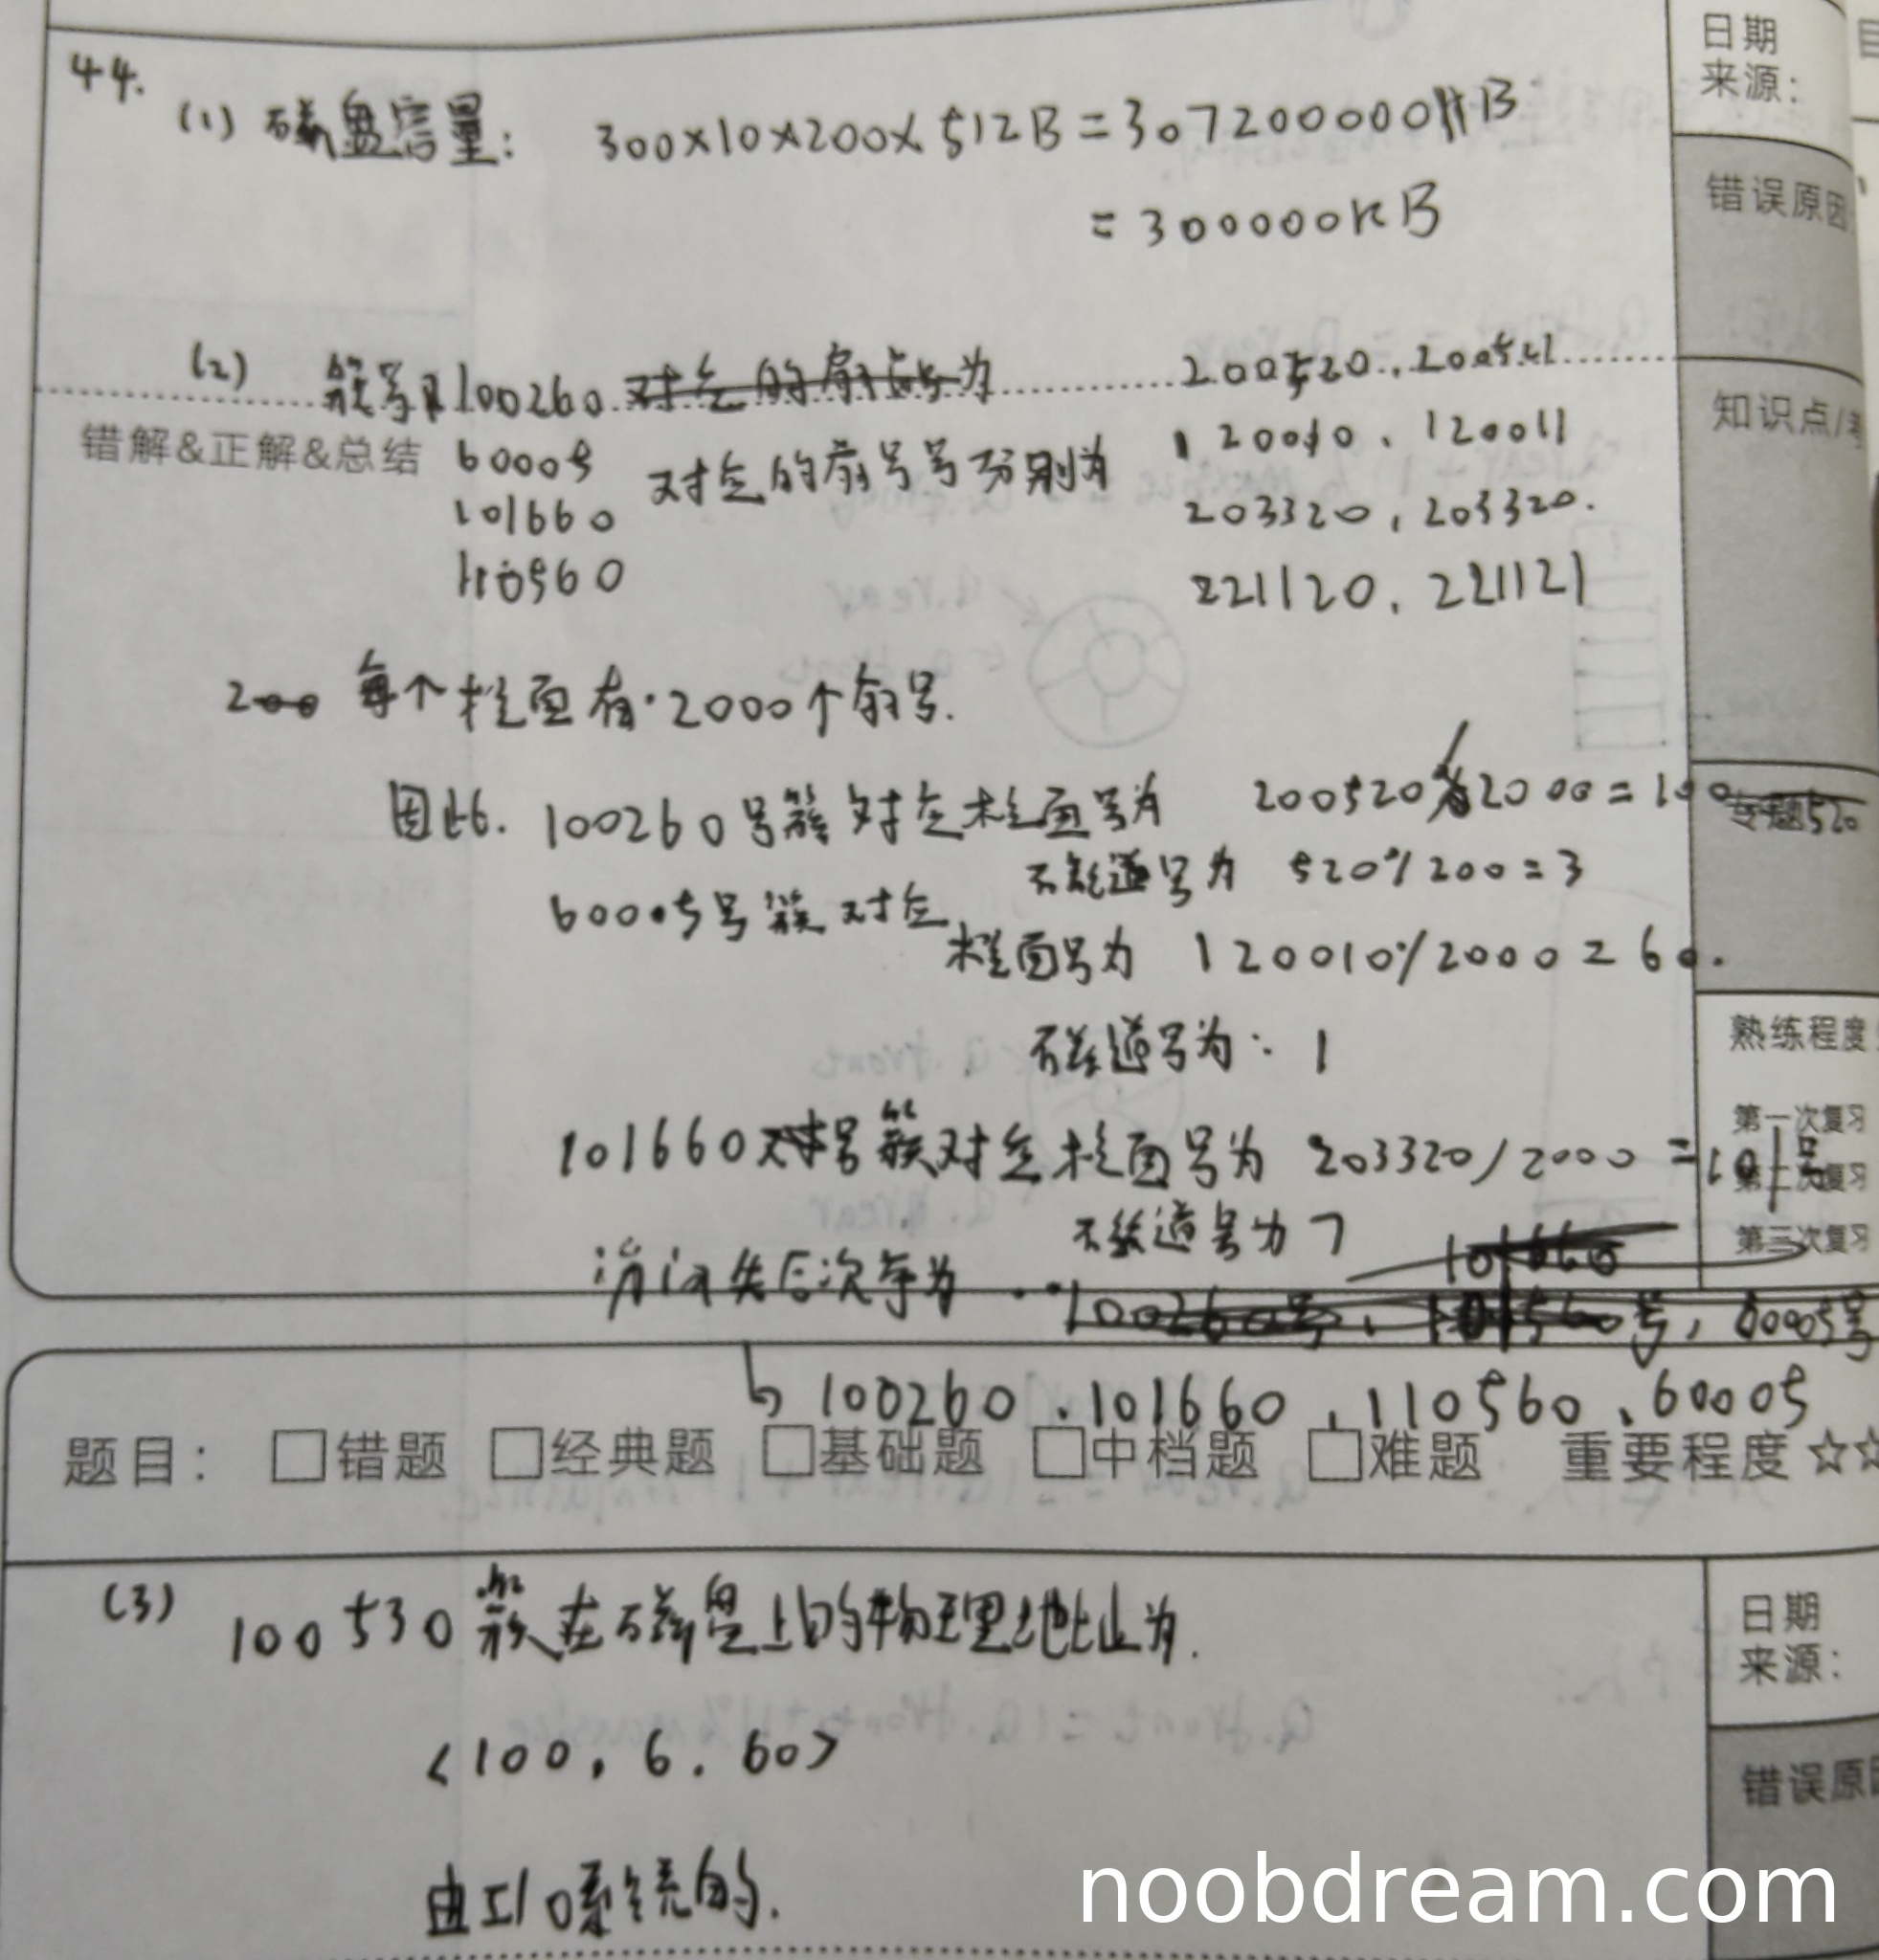 44.
(1) 磁盘容量: 300×10×200×512B = 307200000B
= 300000KB
(2) 簇号 100260 对应的扇区号为 200520, 200521
60005 对应的扇号号分别为 120010, 120011
101660 203320, 203320.
110560 221120, 221121
错解&正解&总结
200 每个柱面有 2000个扇号.
因此. 100260号簇对应柱面号为 200520/2000=100 520
磁道号为 520%200=3
60005号簇对应
柱面号为 120010%2000=60.
磁道号为: 1
101660号簇对应柱面号为 203320/2000=101号
磁道号为7 101660
访问先后次序为 100260号, 101560号, 60005号
100260, 101660, 110560, 60005
题目: 错题 经典题 基础题 中档题 难题 重要程度☆☆
(3) 100530簇在磁盘上的物理地址为.
<100, 6, 60>
由I/O系统的.
日期
来源:
错误原因
知识点/
专题
熟练程度
第一次复习
第二次复习
第三次复习
日期
来源:
错误原因
noobdream.com